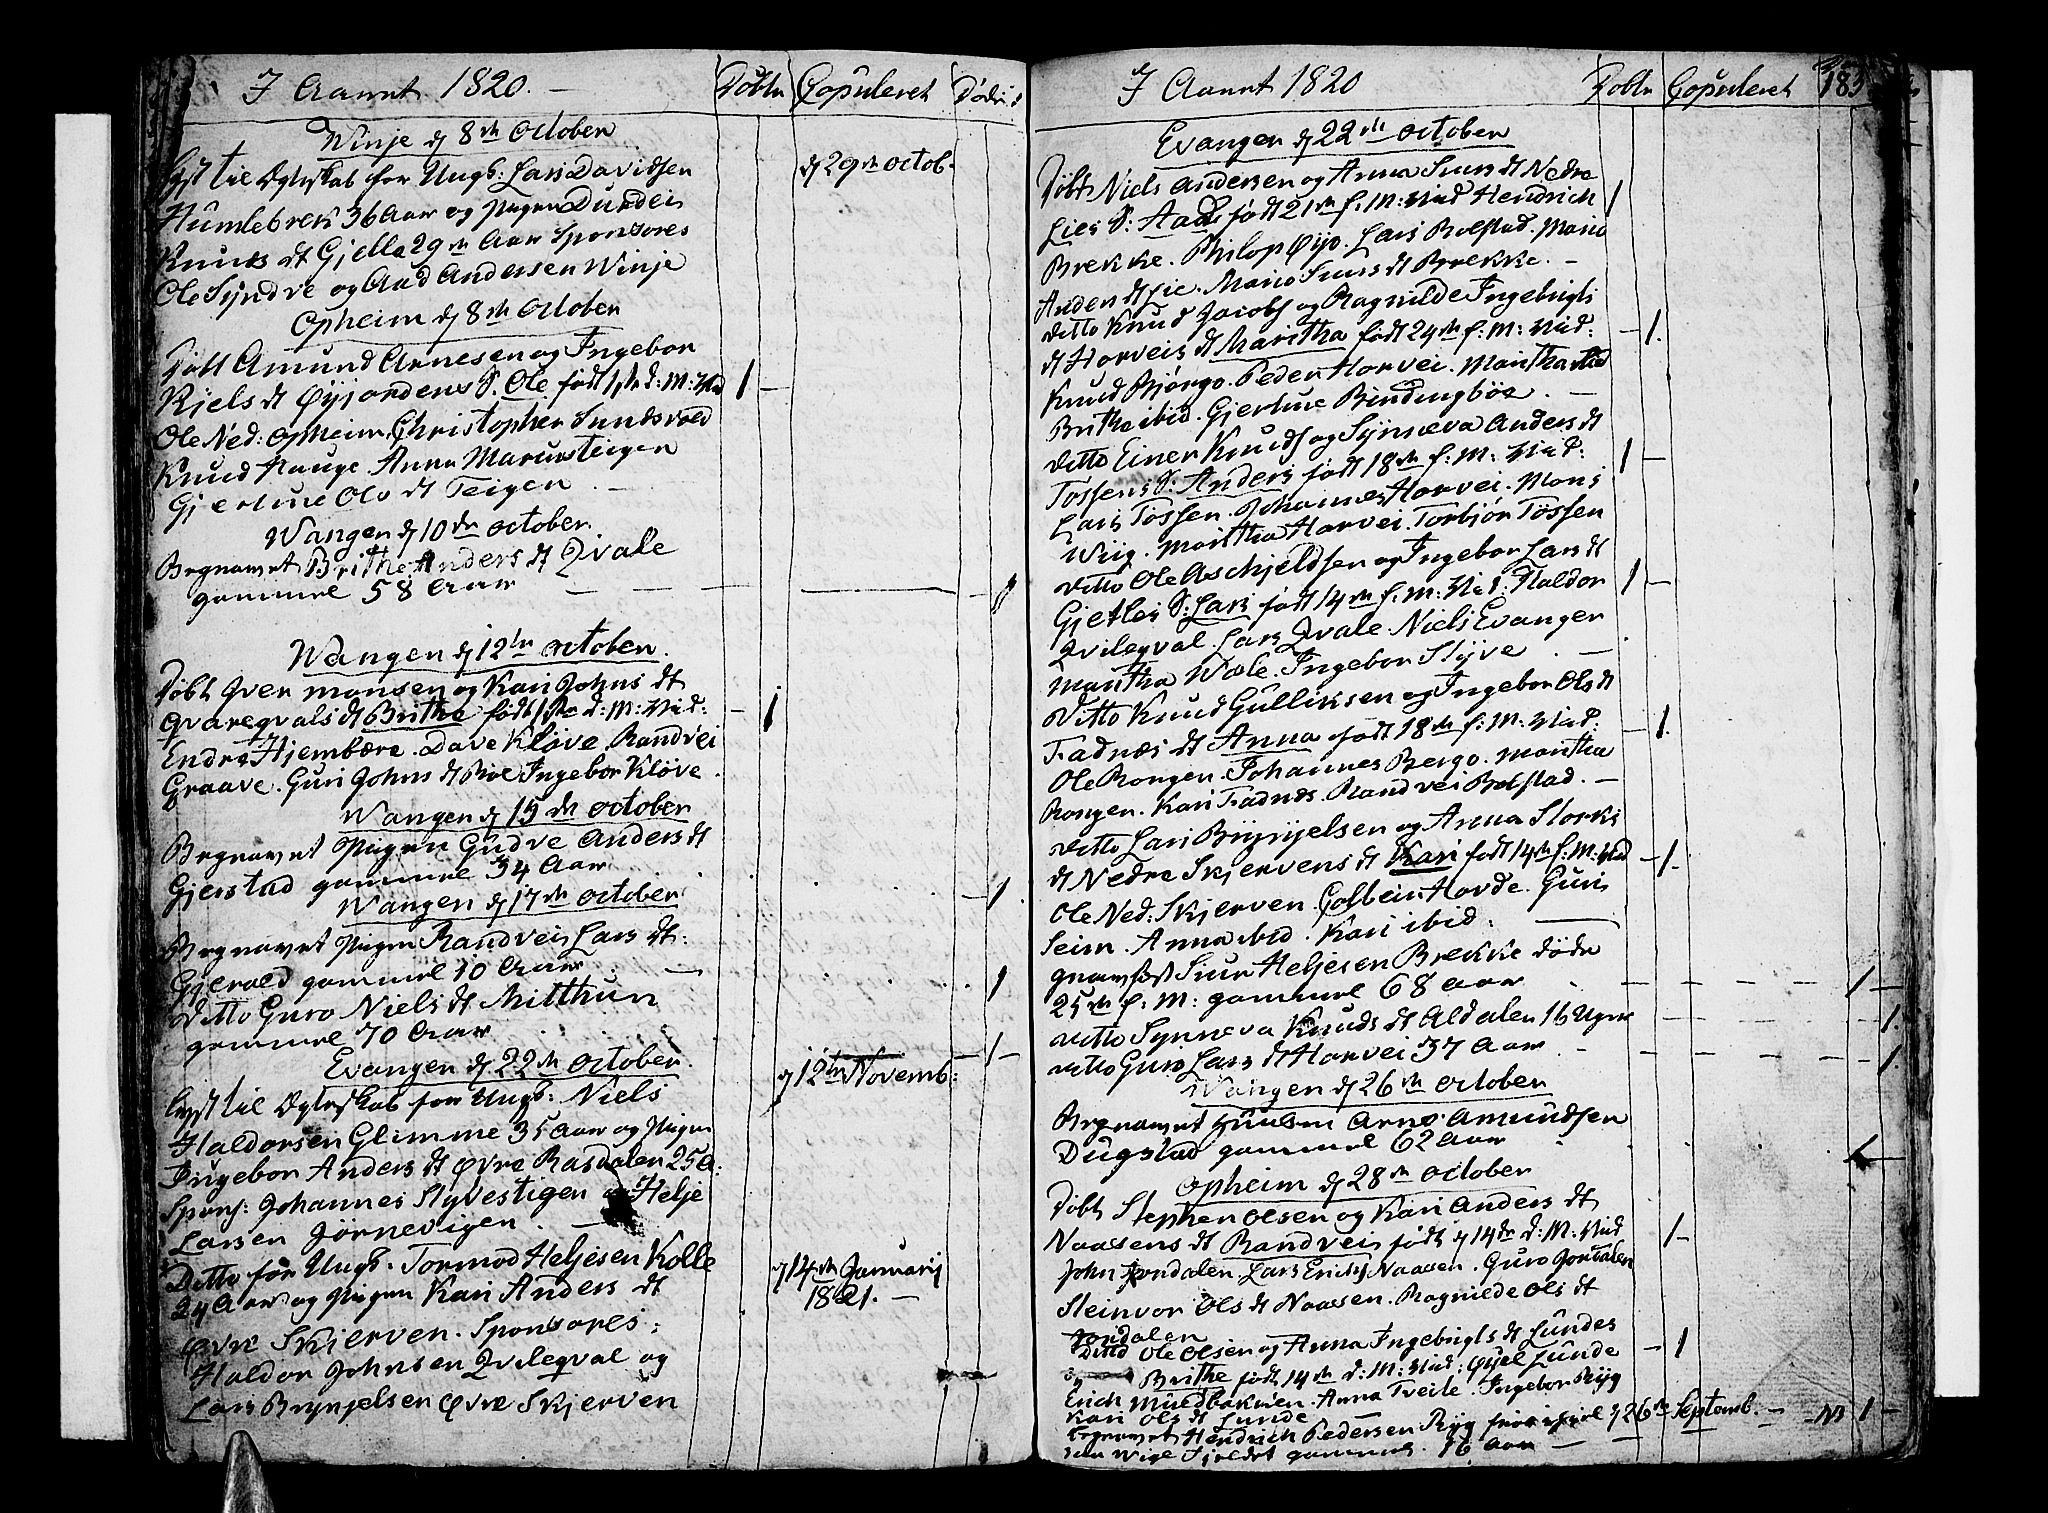 I Aaret 1820. Døbte Copuleret Døde
Winje d 8de October
lyst til Ægteskab for Ungk: Lars Davidsen d 29de octob.
Humlebrek 36 Aar og Pigen
Knuds dt Gjelle 29 Aar Sponsores
Ole Syndve og Aad Andersen Winje
Opheim d 8de October
Døbt Amund Arnesen og Ingebor
Kjels dt Øyjordens S. Ole født d: M: Vid 1
Ole Ned: Opheim, Christopher Sundsvold
Knud Hauge Anna Teigen
Gjertrue Ols dt Teigen
Wangen d 10de October
Begravet Brithe Anders dt Qvale
gammel 58 Aar 1
Wangen d 12te October
Døbt Iver Monsen og Kari Johns dt
dt Brithe født d: M: Vid: 1
Endre Hjembære. Dave Kløve. Randvei
Graave. Guri Johns dt Ingebor Kløve.
Wangen d 15de October
Begravet Pigen Gudve Anders dt
Gjerstad gammel 34 Aar 1
Wangen d 17de October
Begravet Pigen Randvei Lars dt
Gjerald gammel 10 Aar 1
Ditto Guro Niels dt Mitthun
gammel 70 Aar 1
Evangen d 22de October
lyst til Ægteskab for Ungk: Niels d 12te Novemb:
Haldorsen Glimme 35 Aar og Pigen
Ingebor Anders dt Øvre Rasdalen 25 A:
Spons: Johannes Styvestigen og Helje
Larsen Jørnevigen
Ditto for Ungk. Tormod Heljesen Kolle d 14de Januarij
24 Aar og Pigen Kari Anders dt 1821.
Øvre Skjerven. Sponsores:
Haldor Johnsen Qvileqval og
Lars Brynjelsen Øvre Skjerven
I Aaret 1820 Døbte Copuleret 183
Evangen d 22de October
Døbt Niels Andersen og Anna Siurs dt Nedre
Lies S: Aad født 21de f. M: Vid Hendrich 1
Brekke. Philop Øye. Lars Bolstad. Mario
Anders dt Lie. Mario Siurs dt Brekke.
ditto Knud Jacobs og Ragnilde Ingebrigts
dt Horveis dt Maritha født 24de f: M: Vid: 1
Knud Bjørgo. Peder Horvei. Maritha ibid
Brithe ibid. Gjertrue Bindingbøe
ditto Einer Knuds og Synneva Anders dt
Tøssens S: Anders født 18de f: M: Vid: 1
Lars Tøssen. Johannes Horvei. Mons
Wiig. Maritha Horvei. Torbjør Tøssen
ditto Ole Aschjeldsen og Ingebor Lars dt
Gjetles S: Lars født 14de f. M: Vid: Haldor 1
Qvileqval. Lars Qvale. Niels Evanger
Maritha Wæle. Ingebor Styve
Ditto Knud Gulliksen og Ingebor Ols dt
Fadnæs dt Anna født 18de f: M: Vid: 1
Ole Rongen. Johannes Bergo. Maritha
Rongen. Kari Fadnæs. Randvei Bolstad.
ditto Lars Brynjelsen og Anna Storks
dt Nedre Skjervens dt Kari født 14de f: M: Vid 1
Ole Ned: Skjerven. Golbein Horde. Guri
Seim. Anna ibid. Kari ibid.
Siur Heljesen Brekke døde
25de f: M: gammel 68 Aar 1
ditto Synneva Knuds dt Aldalen 16 Uger 1
ditto Guro Lars dt Horvei 37 Aar 1
Wangen d 26de October
Begravet Arne Amundsen
Dugstad gammel 62 Aar 1
Opheim d 28de October
Døbt Stephen Olsen og Kari Anders dt
Naasens dt Randvei født d 14de d: M: Vid 1
John Jordalen. Lars Erichs Naasen. Guro Jordalen
Steinvor Ols dt Naasen. Ragnilde Ols dt
Jordalen
Ditto Ole Olsen og Anna Ingebrigts dt Lundes 1
Brithe født 14de d: M: Vid: Lunde
Erich Anna Tveite. Ingebor Ryg
Kari Ols dt Lunde
Begravet Hendrich Pedersen Ryg d 26de Septemb. 1
gammel 16 Aar